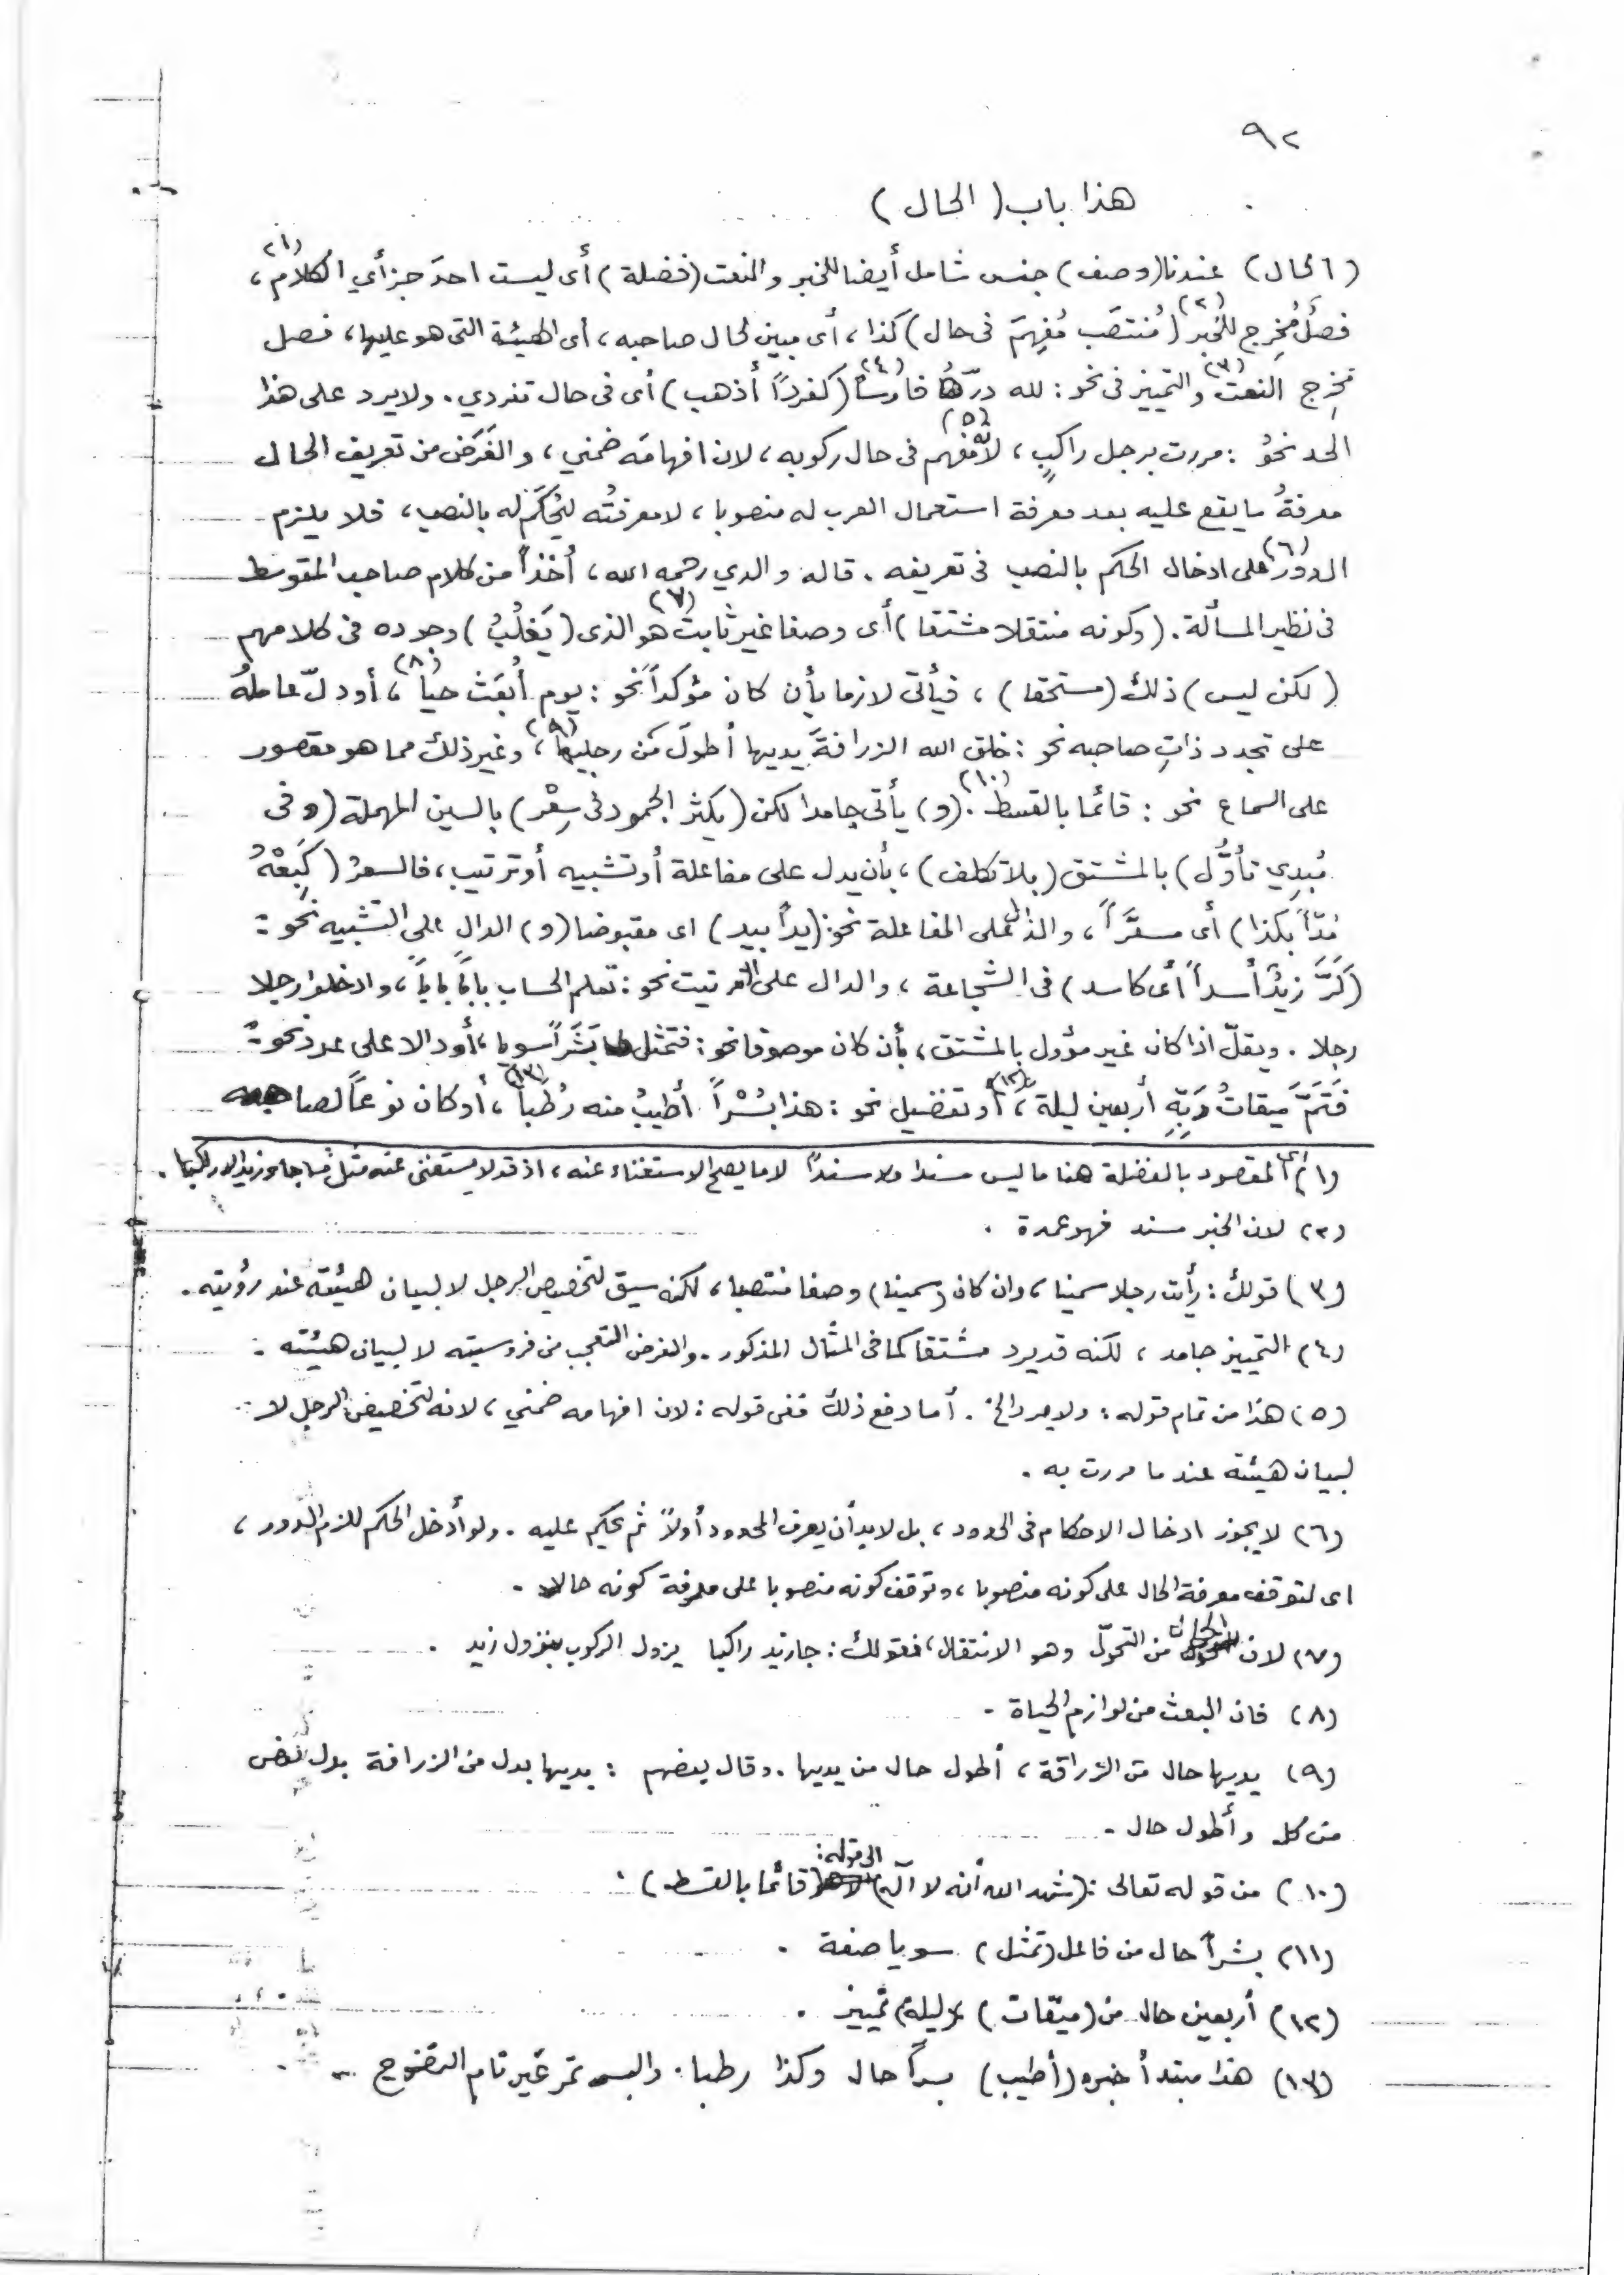 ٩٢
هذا باب (الحال)
(الحال) عندنا (وصف) جنس شامل أيضا للخبر والنعت (فضلة) أى ليست احدَ جزأي الكلام (١)،
فصلٌ مُخرِج للخبر (٢) (مُنتصَب مُفهِمَ فى حال) كذا، أى مبين لحال صاحبه، أى الهيئة التى هو عليها، فصل
مخرِج النعت (٣) والتمييز فى نحو: لله درّه فارسا (٤) (كفرداً أذهب) أى فى حال تفردي. ولا يرد على هذا
الحد نحوُ: مررت برجل راكبٍ، لأنه مُفهم (٥) فى حال ركوبه، لان افهامَه ضمني، والغَرَض من تعريف الحال
معرفةُ ما يقع عليه بعد معرفة استعمال العرب له منصوبا، لا معرفتُه ليُحكَم له بالنصب، فلا يلزم
الدور (٦) على ادخال الحكم بالنصب فى تعريفه. قاله والدي رحمه الله، أخذاً من كلام صاحب المتوسط
فى نظير المسألة. (وكونه منتقلا مشتقا) أى وصفا غير ثابت (٧) هو الذى (يَغلُبُ) وجوده فى كلامهم
(لكن ليس) ذلك (مستحقا)، فيأتى لازما بأن كان مؤكداً نحو: يوم أُبعَثُ حيّا (٨)، أو دلّ عاملهُ
على تجدد ذاتِ صاحبه نحو: خلق الله الزرافةَ يديها أطولَ من رجليها (٩)، وغير ذلك مما هو مقصور
على السماع نحو: قائما بالقسط (١٠). (و) يأتى جامدا لكن (يكثر الجمود فى سِعْر) بالسين المهملة (وفى
مُبدِي تأوُّل) بالمشتق (بلا تكلف)، بأن يدل على مفاعلة أو تشبيه أو ترتيب، فالسعرُ (كَبِعْهُ
مُدّاً بكذا) أى مسعَّراً، والدال على المفاعلة نحو: (يداً بيد) اى مقبوضا (و) الدال على التشبيه نحو:
(كَرَّ زيدٌ أسداً أى كاسد) فى الشجاعة، والدال على الترتيب نحو: تعلم الحساب باباً باباً، وادخلوا رجلا
رجلا. ويقلّ اذا كان غير مؤول بالمشتق، بأن كان موصوفا نحو: فتمثل لها بَشَراً سويا، أو دالا على عدد نحو:
فَتَمَّ ميقاتُ رَبِّهِ أربعين ليلة (١٢)، أو تفضيل نحو: هذا بُسْراً أطيبُ منه رُطَباً (١٣)، أو كان نوعاً لصاحبه
(١) أى المقصود بالفضلة هنا ما ليس مسندا ولا مسنداً لا ما يصح الاستغناء عنه، اذ قد لا يستغنى عنه مثل ما جاء زيد الا راكبا.
(٢) لان الخبر مسند فهو عمدة.
(٣) قولك: رأيت رجلا سمينا، وان كان (سمينا) وصفا منتصبا، لكنه سيق لتخصيص الرجل لا لبيان هيئته عند رؤيته.
(٤) التمييز جامد، لكنه قد يرد مشتقا كما فى المثال المذكور. والغرض التعجب من فروسيته لا لبيان هيئته.
(٥) هذا من تمام قوله: ولا يرد الخ. أما دفع ذلك ففى قوله: لان افهامه ضمني، لانه لتخصيص الرجل لا
لبيان هيئته عند ما مررت به.
(٦) لا يجوز ادخال الاحكام فى الحدود، بل لابد أن يعرف المحدود أولاً ثم يحكم عليه. ولو أُدخل الحكم للزم الدور،
اى لتوقف معرفة الحال على كونه منصوبا، وتوقف كونه منصوبا على معرفة كونه حالا.
(٧) لان الحال من التحوّل وهو الانتقال، فقولك: جا زيد راكبا يزول الركوب بنزول زيد.
(٨) فان البعث من لوازم الحياة.
(٩) يديها حال من الزرافة، أطول حال من يديها. وقال بعضهم: يديها بدل من الزرافة بدل بعض
من كل وأطول حال.
(١٠) من قوله تعالى: (شهد الله أنه لا آله) الى قوله: (قائما بالقسط).
(١١) بشراً حال من فاعل (تمثل) سويا صفة.
(١٢) أربعين حال من (ميقات) (ليلة) تمييز.
(١٣) هذا مبتدأ خبره (أطيب) بسراً حال وكذا رطبا. والبسر تمر غير تام النضوج.